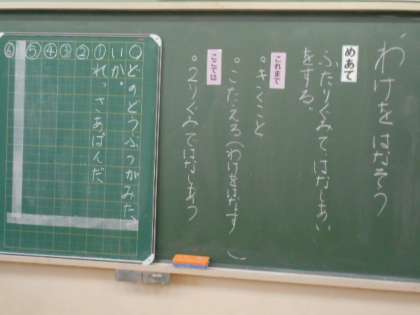 わけをはなそう
めあて
ふたりぐみではなしあい
をする。
これまで
。きくこと
。こたえる(わけをはなす)
ここでは
。2りぐみではなしあう
○どのどうぶつがみた
いか。
①れっさあぱんだ
②
③
④
⑤
⑥